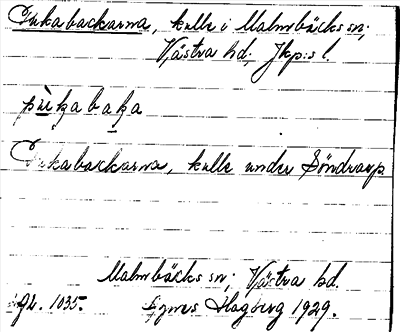 Pukabackarna, kulle i Malmbäcks sn;
Västra hd; Jkp:s l.
pɯ̀ka baka
Pukabackarna, kulle under Söndraarp
Malmbäcks sn; Västra hd.
Gr. 1035. Agnes Hagberg 1929.